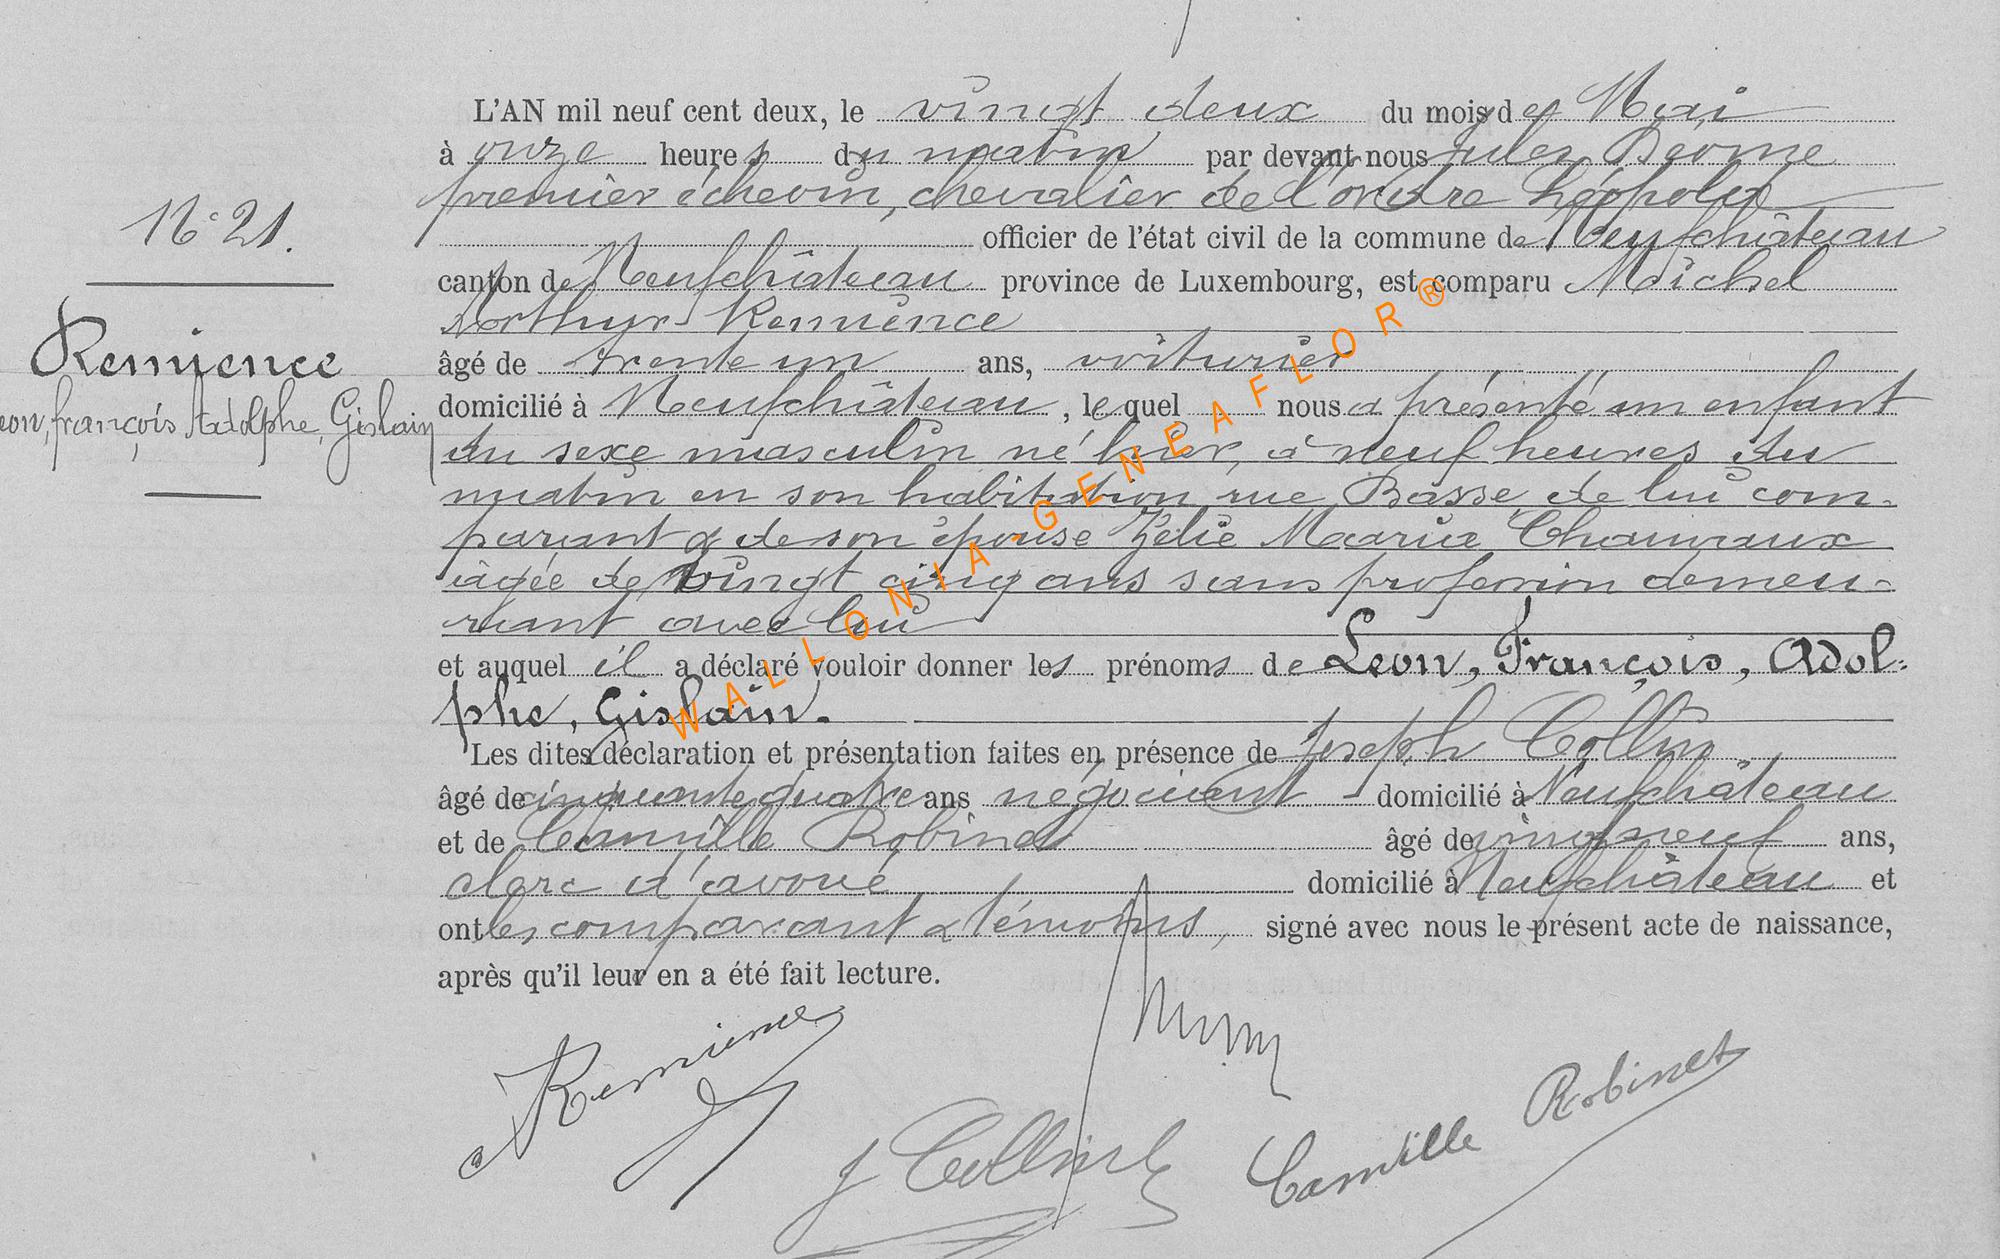 L'AN mil neuf cent deux, le vingt deux du mois de Mai
à onze heures du matin par devant nous Jules
premier échevin, chevalier de l'ordre Léopold
officier de l'état civil de la commune de Neufchâteau
canton de Neufchâteau province de Luxembourg, est comparu Michel
Arthur Remience
âgé de trente un ans, voiturier
domicilié à Neufchâteau, lequel nous a présenté un enfant
du sexe masculin né hier, à neuf heures du
matin en son habitation rue Basse, de lui com-
parant & de son épouse Zélie Maria
âgée de vingt cinq ans sans profession demeu-
rant avec lui
et auquel il a déclaré vouloir donner les prénoms de Leon, François, Adol-
phe, Gislain.
Les dites déclaration et présentation faites en présence de Joseph Collin
âgé de cinquante quatre ans négociant domicilié à Neufchâteau
et de Camille Robinet âgé de vingt neuf ans,
clerc d'avoué domicilié à Neufchâteau et
ont les comparant & témoins, signé avec nous le présent acte de naissance,
après qu'il leur en a été fait lecture.
N° 21.
Remience
Leon, françois Adolphe, Gislain
WALLONIA-GENEAFLOR®
Remience
J Collin
Camille Robinet